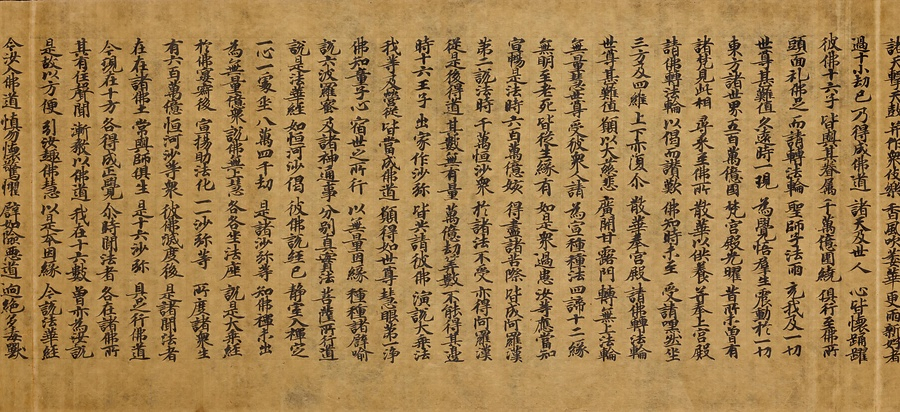 諸天擊天鼓 并作衆伎樂 香風吹萎華 更雨新好者
過十小劫已 乃得成佛道 諸天及世人 心皆懷踊躍
彼佛十六子 皆與其眷属 千萬億圍繞 俱行至佛所
頭面礼佛足 而請轉法輪 聖師子法雨 充我及一切
世尊甚難值 久遠時一現 為覺悟群生 震動於一切
東方諸世界 五百萬億國 梵宮殿光曜 昔所未曾有
諸梵見此相 尋来至佛所 散華以供養 并奉上宮殿
請佛轉法輪 以偈而讃歎 佛知時未至 受請嘿然坐
三方及四維 上下亦復尒 散華奉宮殿 請佛轉法輪
世尊甚難值 願以大慈悲 廣開甘露門 轉無上法輪
無量慧世尊 受彼衆人請 為宣種種法 四諦十二緣
無明至老死 皆從生緣有 如是衆過患 汝等應當知
宣暢是法時 六百萬億姟 得盡諸苦際 皆成阿羅漢
第二說法時 千萬恒沙衆 於諸法不受 亦得阿羅漢
從是後得道 其數無有量 萬億劫筭數 不能得其邊
時十六王子 出家作沙弥 皆共請彼佛 演說大乗法
我等及營從 皆當成佛道 願得如世尊 慧眼第一淨
佛知童子心 宿世之所行 以無量因緣 種種諸譬喻
說六波羅蜜 及諸神通事 分別真實法 菩薩所行道
說是法華經 如恒河沙偈 彼佛說經已 静室入禪定
一心一處坐 八萬四千劫 是諸沙弥等 知佛禪未出
為無量億衆 說佛無上慧 各各坐法座 說是大乗經
於佛宴寂後 宣揚助法化 一一沙弥等 所度諸衆生
有六百萬億 恒河沙等衆 彼佛滅度後 是諸聞法者
在在諸佛土 常與師俱生 是十六沙弥 具足行佛道
今現在十方 各得成正覺 尒時聞法者 各在諸佛所
其有住聲聞 漸教以佛道 我在十六數 曾亦為汝說
是故以方便 引汝趣佛慧 以是本因緣 今說法華經
令汝入佛道 慎勿懷驚懼 譬如險惡道 迥絕多毒獸